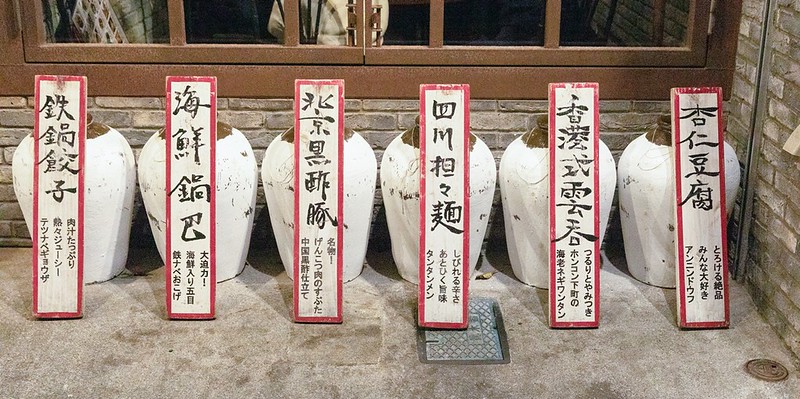 鉄鍋餃子
肉汁たっぷり
熱々ジューシー
テツナベギョウザ
海鮮鍋巴
大迫力!
海鮮入り五目
鉄ナベおこげ
北京黒酢豚
名物!
げんこつ肉のすぶた
中国黒酢仕立て
四川担々麺
しびれる辛さ
あとひく旨味
タンタンメン
香港式雲呑
つるりとやみつき
ホンコン下町の
海老ネギワンタン
杏仁豆腐
とろける絶品
みんな大好き
アンニンドウフ